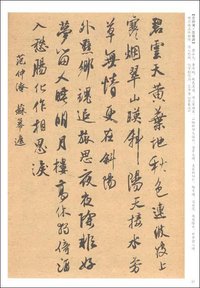 碧雲天黃葉地秋色連波波上
寒烟翠山映斜陽天接水芳
草無情更在斜陽
外黯鄉魂追旅思夜夜除非好
夢留人睡明月樓高休獨倚酒
入愁腸化作相思淚
范仲淹 蘇幕遮